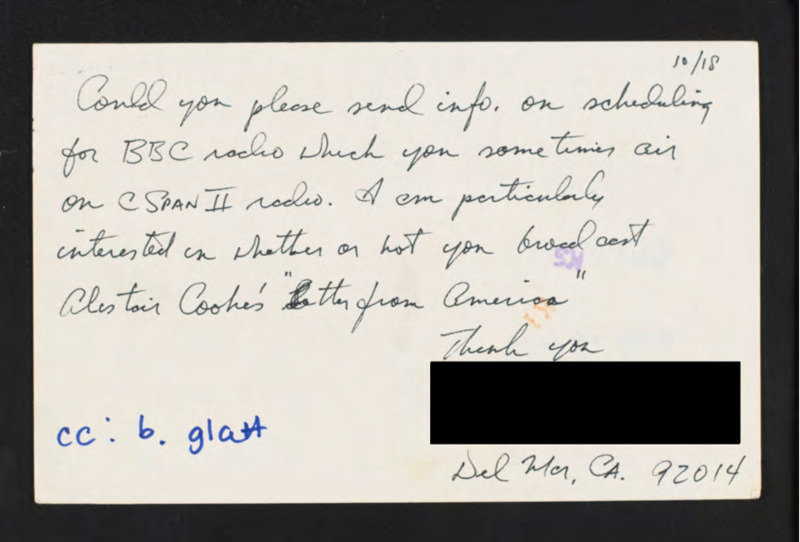 10/18
Could you please send info. on scheduling
for BBC radio which you sometimes air
on CSPAN II radio. I am particularly
interested in whether or not you broadcast
Alestair Cooke's "Letter from America"
Thank you
cc: b. glatt
Del Mar, CA. 92014